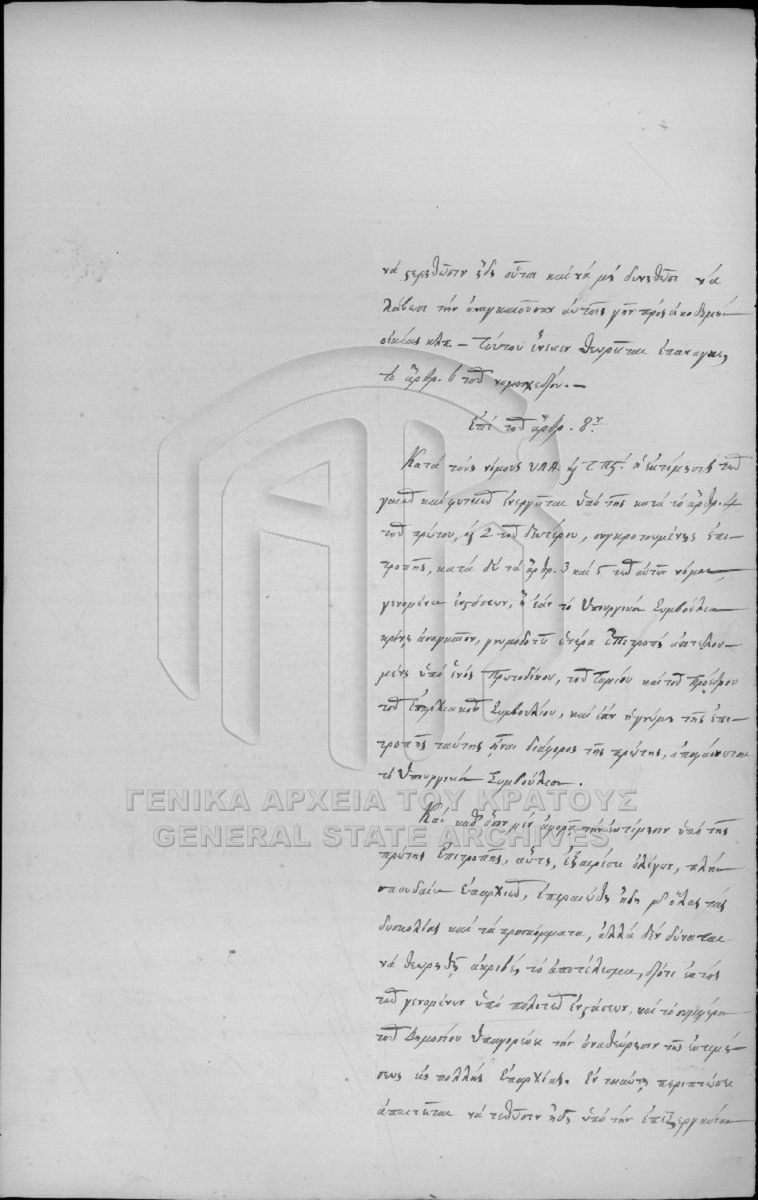 νά στερηθῶσιν ἤδη οὗτοι καί νά μή δυνηθῶσι νά
λάβωσι τήν ἀναγκαιοῦσαν αὐτοῖς γῆν πρός ἀνοδομήν
οἰκίας κλπ. — Τούτου ἕνεκεν θεωρεῖται ἐπάναγκες
τό ἄρθρ. 6 τοῦ νομοσχεδίου. —
Ἐπί τοῦ ἄρθρ. 8ου
Κατά τούς νόμους ΥΛΑ. καί ΤΠΖ. ἡ ἐκτίμησις τῶν
γαιῶν καί φυτειῶν ἐνεργεῖται ὑπό τῆς κατά τό ἄρθρ. 4
τοῦ πρώτου, καί 2 τοῦ δευτέρου, συγκροτουμένης ἐπι-
τροπῆς, κατά δέ τά ἄρθρ. 3 καί 5 τῶν αὐτῶν νόμων
γενομένων ἐνστάσεων, ἤ ἐάν τό Ὑπουργικόν Συμβούλιον
κρίνῃ ἀναγκαῖον, γνωμοδοτεῖ ἑτέρα Ἐπιτροπή ἀποτελου-
μένη ὑπό ἑνός Πρωτοδίκου, τοῦ Ταμίου καί τοῦ Προέδρου
τοῦ Ἐπαρχιακοῦ Συμβουλίου, καί ἐάν ἡ γνώμη τῆς ἐπι-
τροπῆς ταύτης ἦναι διάφορος τῆς πρώτης, ἀποφαίνεται
τό Ὑπουργικόν Συμβούλιον.
Καί καθ' ὅσον μέν ἀφορᾷ τήν ἐκτίμησιν ὑπό τῆς
πρώτης Ἐπιτροπῆς, αὕτη, ἐξαιρέσει ὀλίγων, πλήν
σπουδαίων Ἐπαρχιῶν, ἐπεραιώθη ἤδη μεθ' ὅλας τάς
δυσκολίας καί τά προσκόμματα, ἀλλά δέν δύναται
νά θεωρηθῇ ἀκριβές τό ἀποτέλεσμα, διότι ἐκτός
τῶν γενομένων ὑπό πολιτῶν ἐνστάσεων, καί τό συμφέρον
τοῦ Δημοσίου ὑπαγορεύει τήν ἀναθεώρησιν τῆς ἐκτιμή-
σεως εἰς πολλάς Ἐπαρχίας. Ἐν ταύτῃ περιπτώσει
ἀπαιτεῖται νά τεθῶσιν ἤδη ὑπό τήν ἐπεξεργασίαν
ΓΕΝΙΚΑ ΑΡΧΕΙΑ ΤΟΥ ΚΡΑΤΟΥΣ
GENERAL STATE ARCHIVES